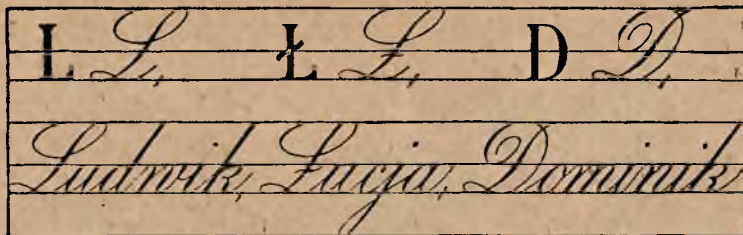 L L, Ł Ł, D D,
Ludwik, Łucja, Dominik